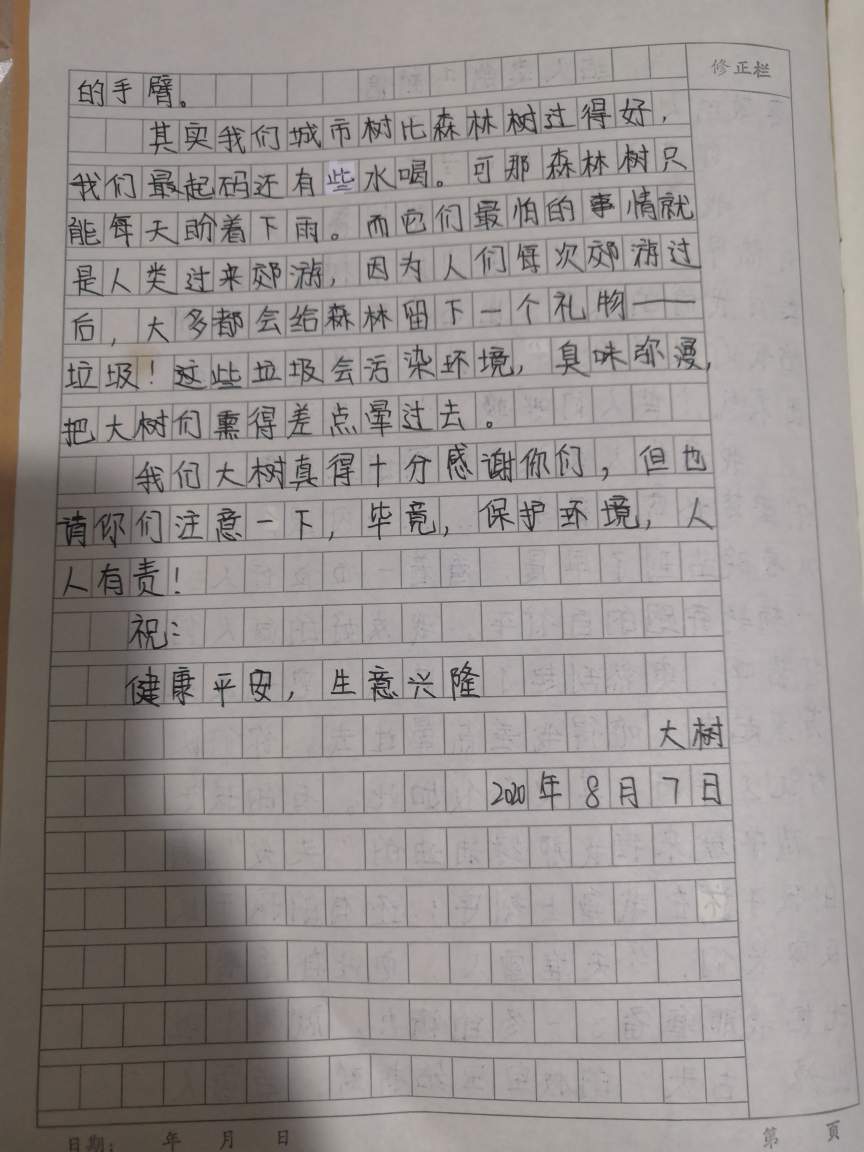 修正栏
的手臂。
其实我们城市树比森林树过得好，
我们最起码还有些水喝。可那森林树只
能每天盼着下雨。而它们最怕的事情就
是人类过来郊游，因为人们每次郊游过
后，大多都会给森林留下一个礼物——
垃圾！这些垃圾会污染环境，臭味弥漫，
把大树们熏得差点晕过去。
我们大树真得十分感谢你们，但也
请你们注意一下，毕竟，保护环境，人
人有责！
祝：
健康平安，生意兴隆
大树
2020年8月7日
日期： 年 月 日 第 页